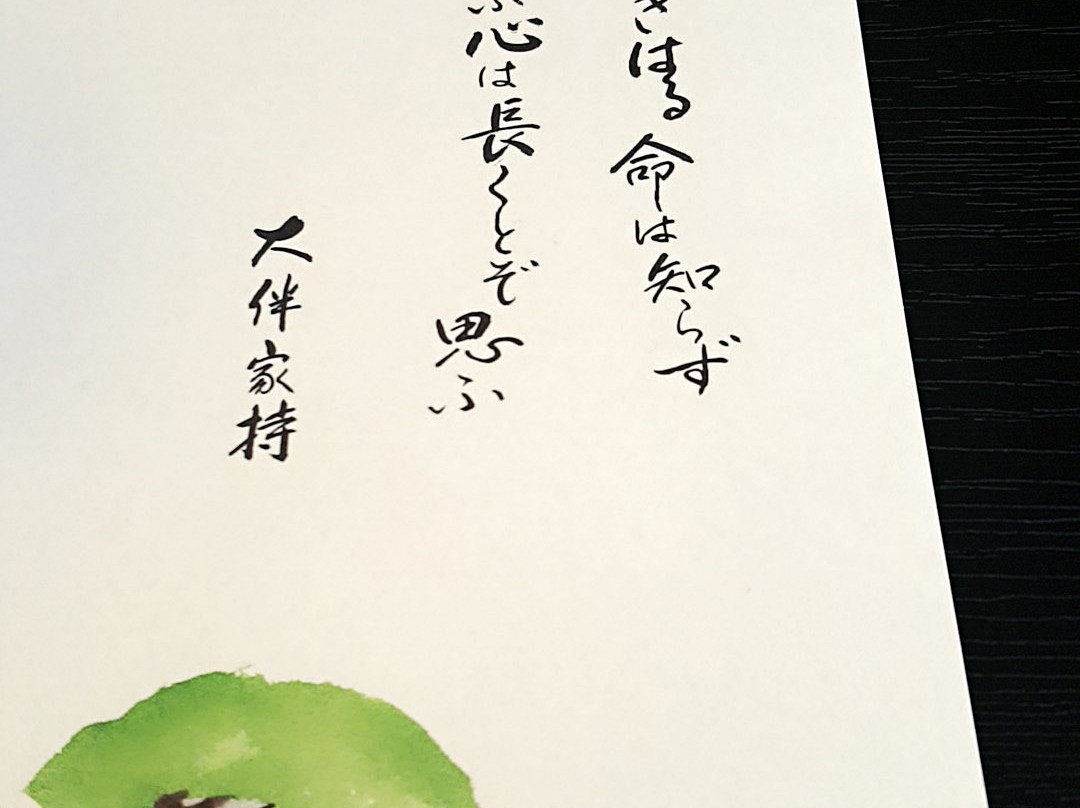 きはる命は知らず
ぶ心は長くとぞ思ふ
大伴家持